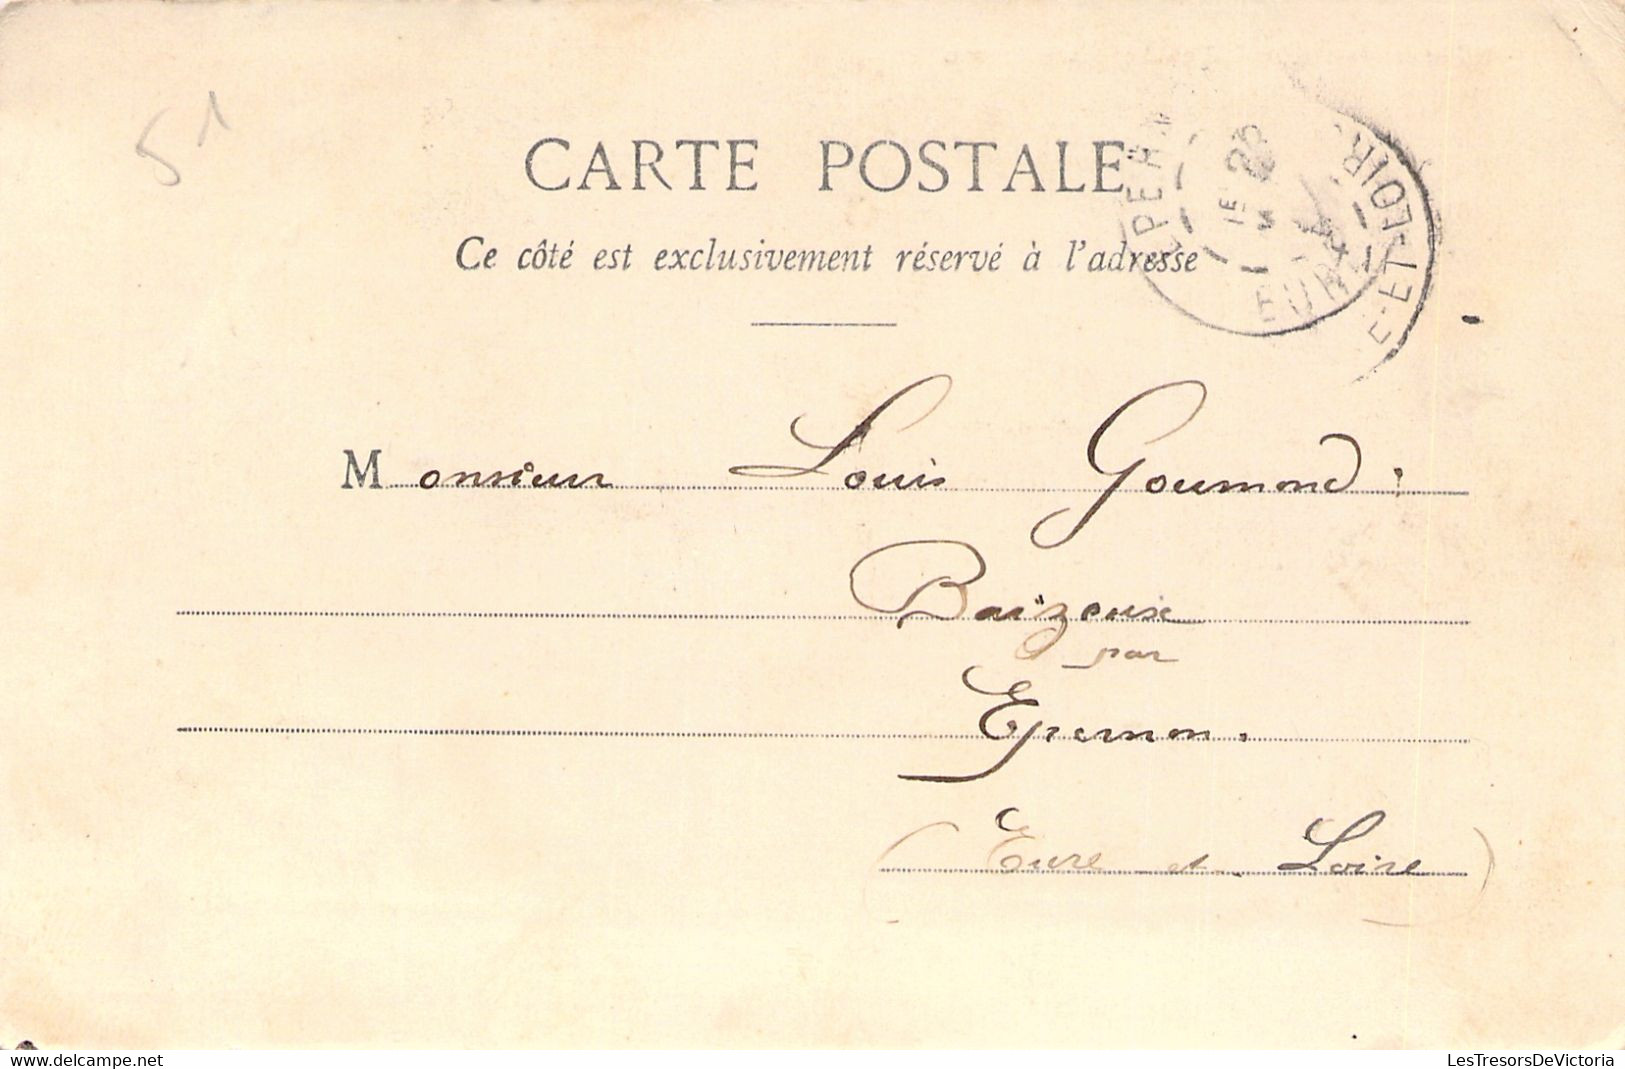 51
CARTE POSTALE
Ce côté est exclusivement réservé à l'adresse
EURE-ET-LOIR
Monsieur Louis Goumond
Baizeux
par
Epernon.
(Eure et Loire)
www.delcampe.net
LesTresorsDeVictoria